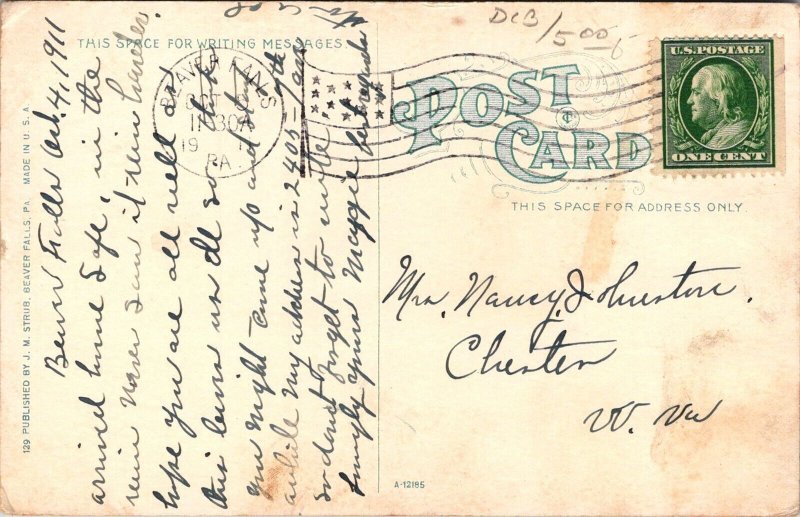 THIS SPACE FOR WRITING MESSAGES.
Beaver Falls Oct. 4, 1911
arrived home Safe, in the
rain Never Saw it rain harder
hope you are all well as
this leaves us all so think
you might come up and stay
awhile My address is 2405 7th ave
So dont forget to write
lovingly yours Maggie
BEAVER FALLS
1130A
19
PA.
DCB/5.00
POST CARD
U.S. POSTAGE
ONE CENT
THIS SPACE FOR ADDRESS ONLY.
Mrs. Nancy Johnston.
Chester
W. Va
129 PUBLISHED BY J. M. STRUB, BEAVER FALLS, PA. MADE IN U. S. A.
A-12185